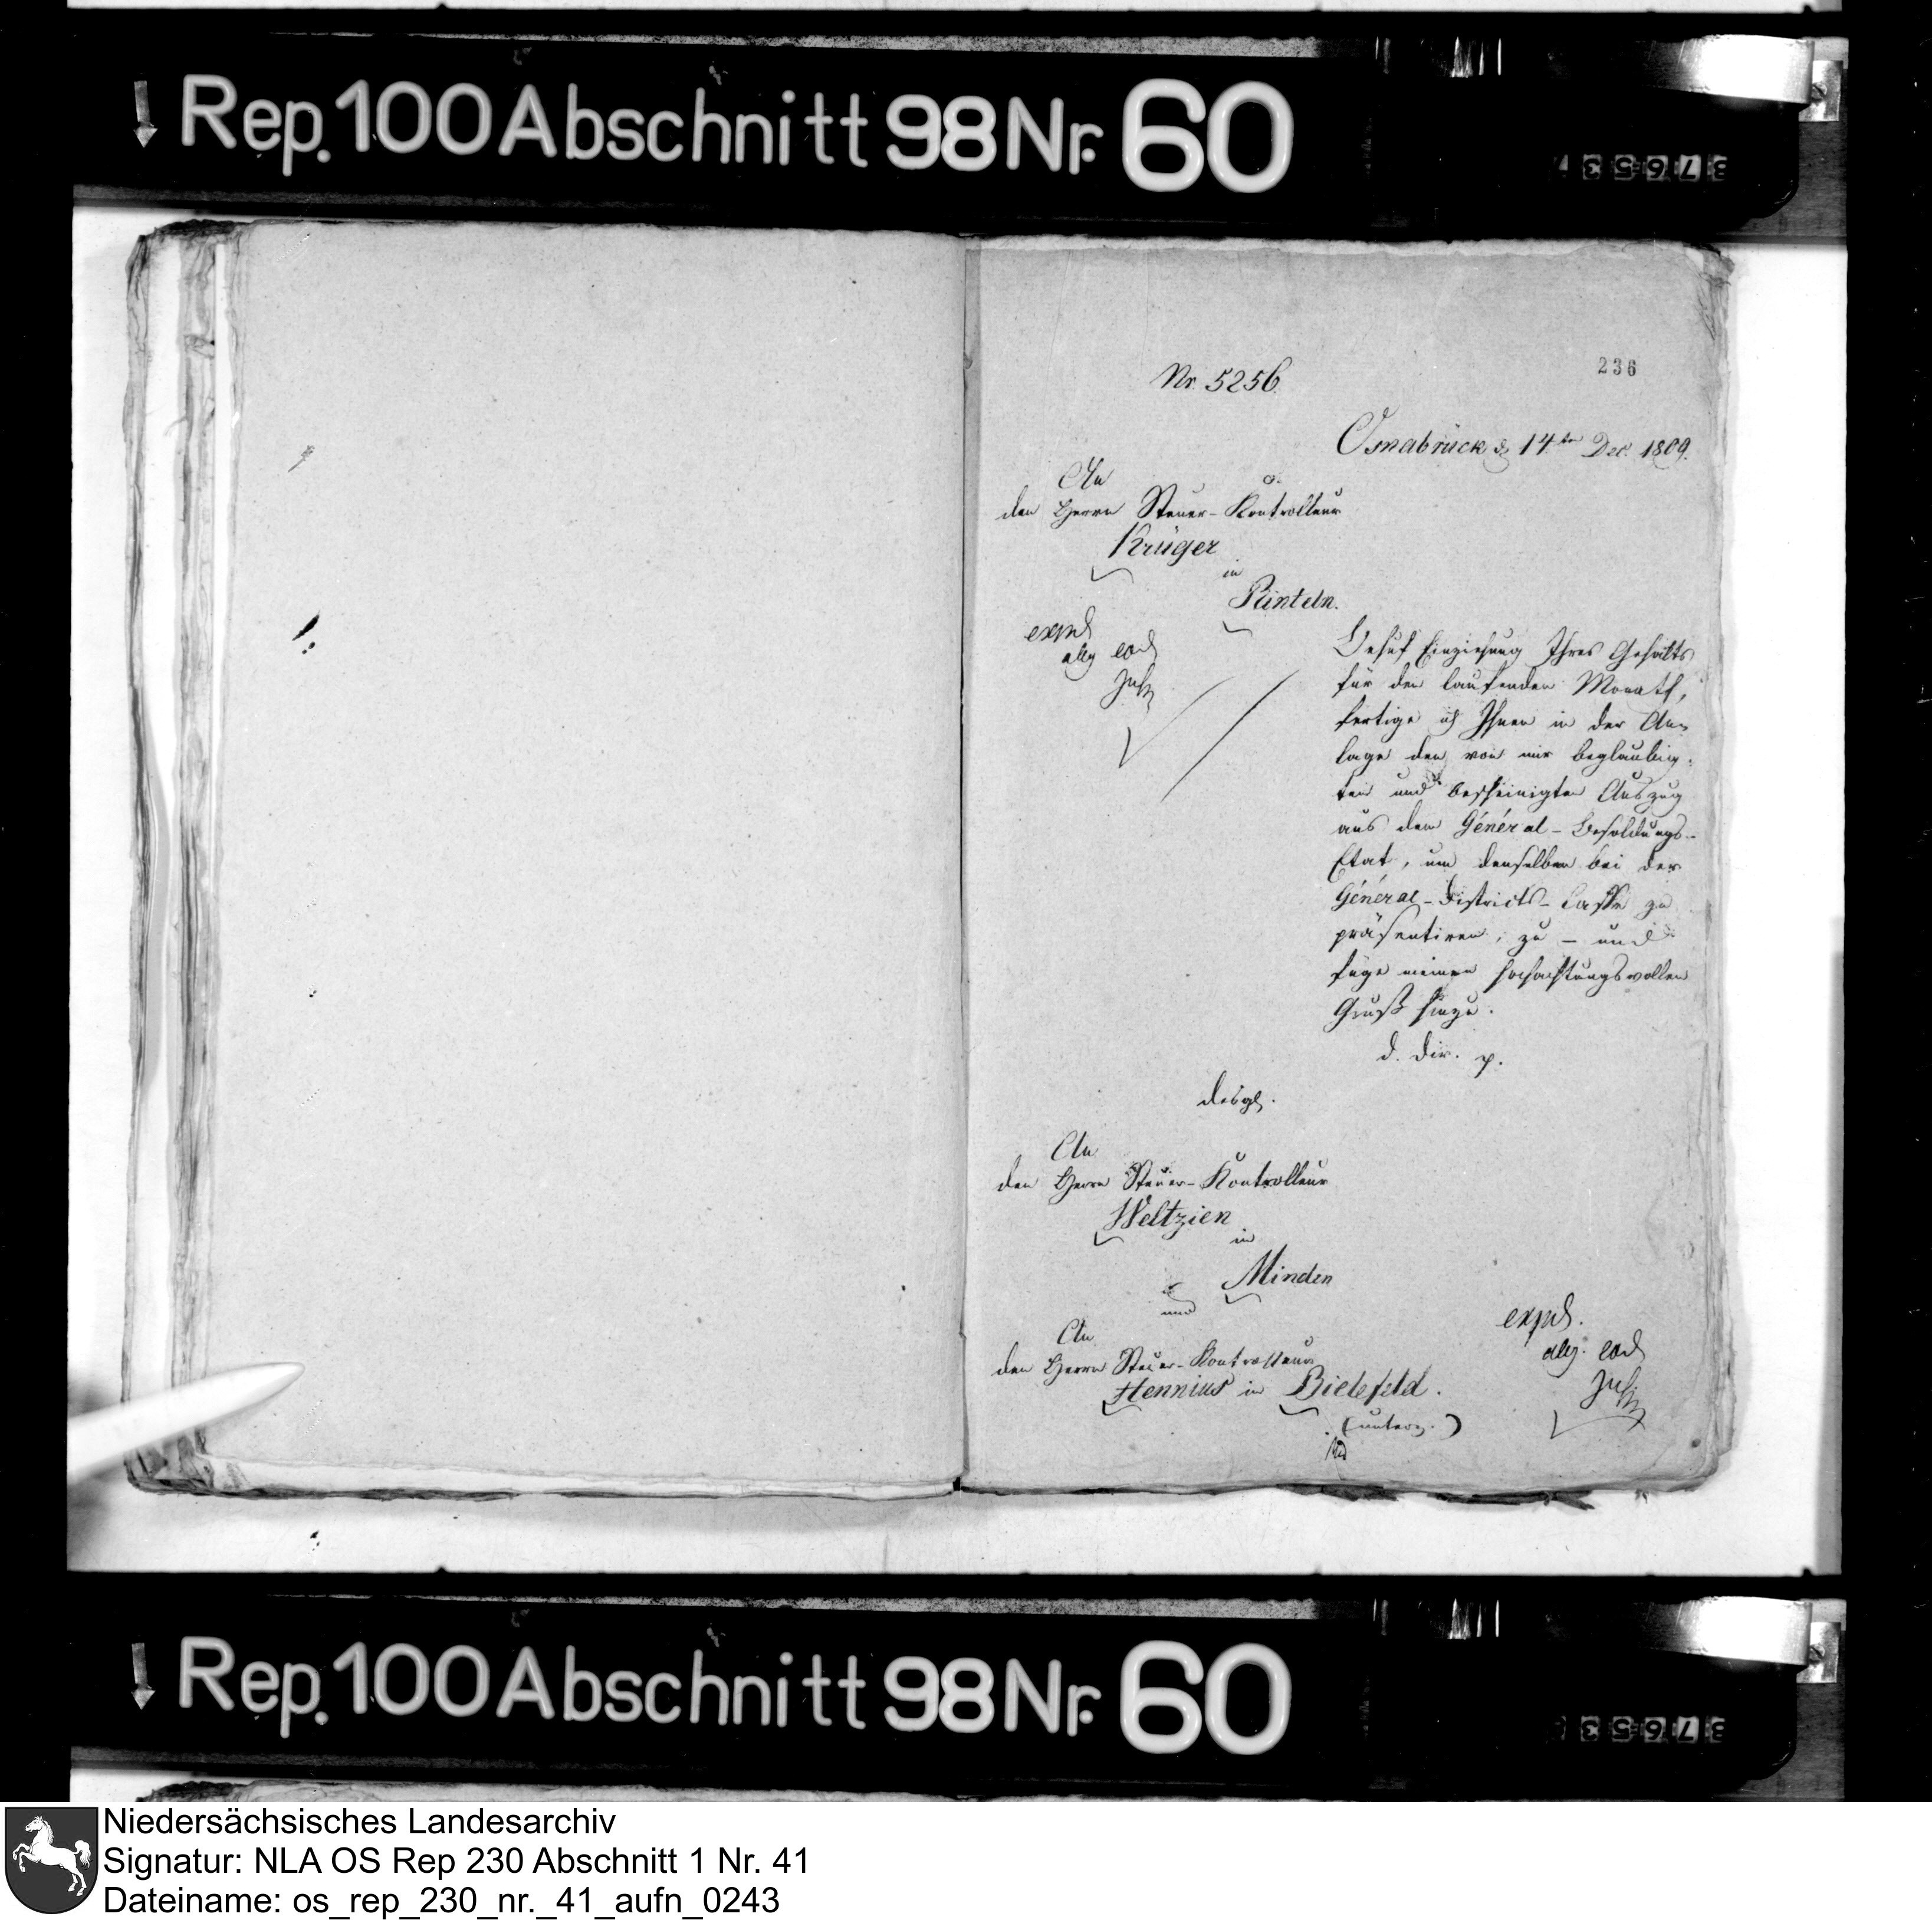 Rep. 100 Abschnitt 98 Nr. 60
376537
236
Nr. 5256.
Osnabrück d. 14ten Dec. 1809.
An
den Herrn Steuer-Kontrolleur
Krüger
in
Rinteln.
expd
abg eod
Behuf Einziehung Ihres Gehalts
für den laufenden Monath,
fertige ich Ihnen in der An-
lage den von mir beglaubig-
ten und bescheinigten Auszug
aus dem Général-Besoldungs-
Etat, um denselben bei der
Général-Districts-Casse zu
präsentiren, zu - und
füge meinen hochachtungsvollen
Gruß hinzu.
d. Dir. p.
desgl.
An
den Herrn Steuer-Kontrolleur
Weltzien
in
Minden
und
An
den Herrn Steuer-Kontrolleur
Hennius in Bielefeld.
expd.
abg. eod
Rep. 100 Abschnitt 98 Nr. 60
Niedersächsisches Landesarchiv
Signatur: NLA OS Rep 230 Abschnitt 1 Nr. 41
Dateiname: os_rep_230_nr._41_aufn_0243